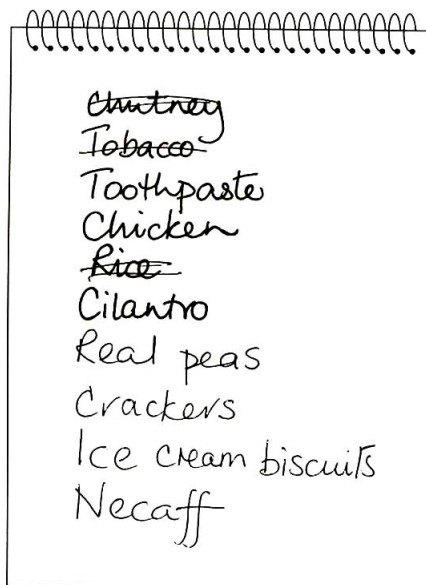 Chutney
Tobacco
Toothpaste
Chicken
Rice
Cilantro
Real peas
Crackers
Ice cream biscuits
Necaff